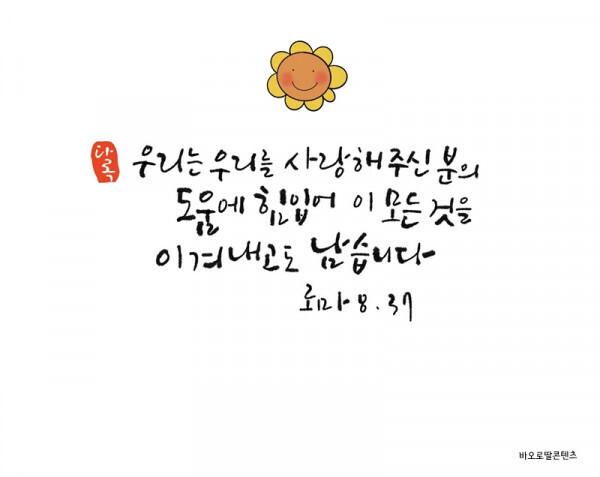 다록
우리는 우리를 사랑해 주신 분의
도움에 힘입어 이 모든 것을
이겨내고도 남습니다
로마 8.37
바오로딸콘텐츠